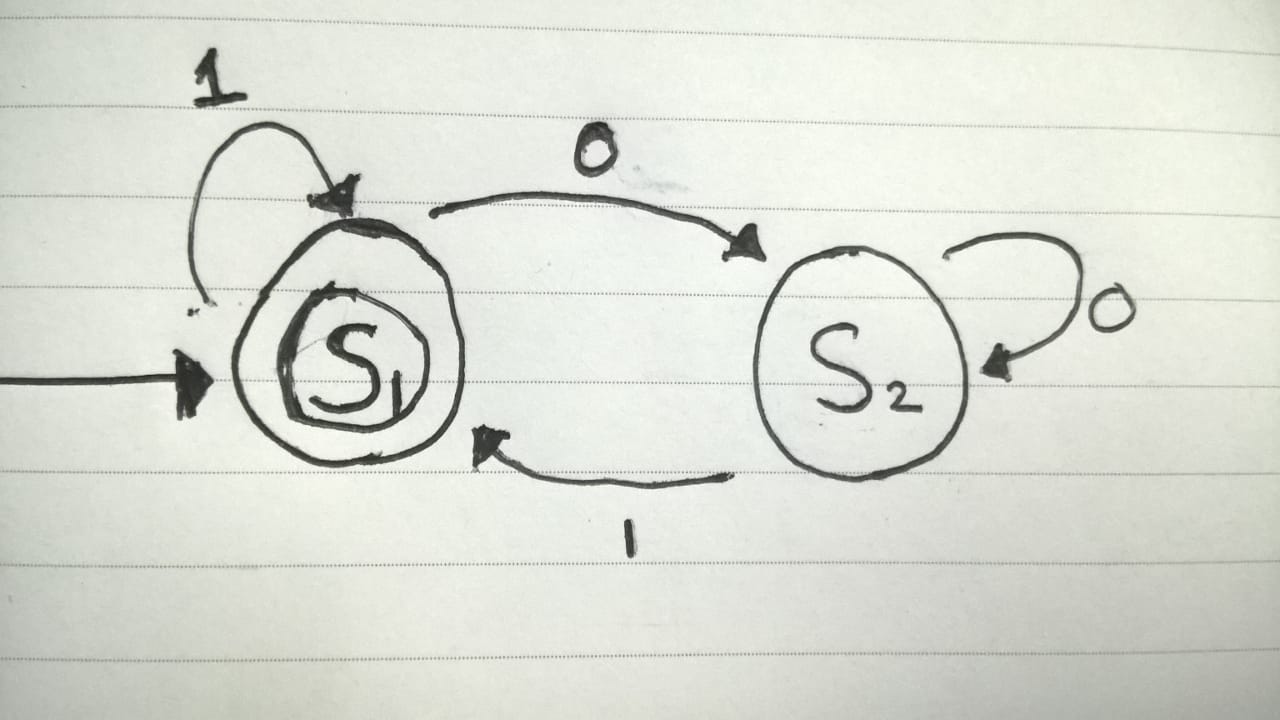 1
0
S1
S2
0
1